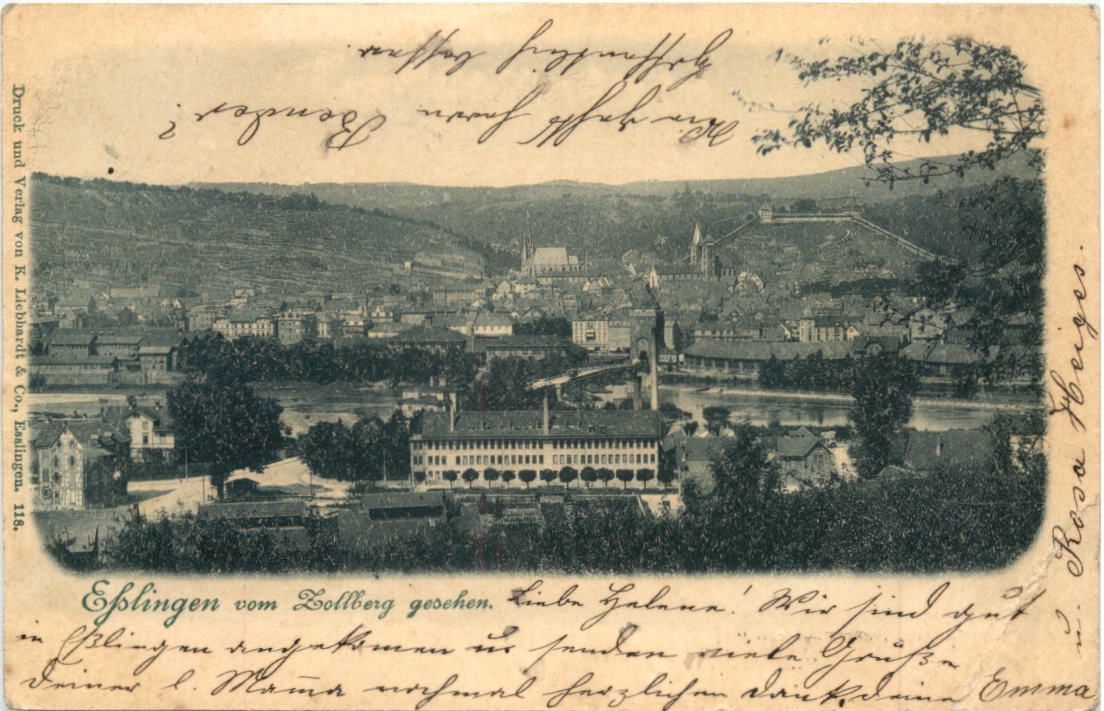 Druck und Verlag von K. Liebhardt & Co., Esslingen. 118.
Eßlingen vom Zollberg gesehen.
Liebe Helene! Wir sind gut
in Eßlingen angekomen u. senden viele Grüße
deiner l. Mama nochmal herzlichen Dank, deine Emma
u. Rosa Heigss.
Wie gehts herrn Bender?
Hoffentlich besser